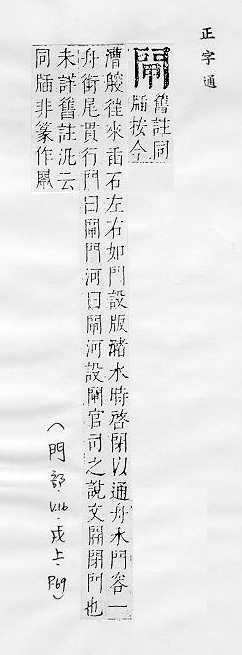 正字通
閘
舊註同
牐按今
漕艘往來臿石左右如門設版瀦水時啓閉以通舟水門容一
舟銜尾貫行門曰閘門河曰閘河設閘官司之說文開閉門也
未詳舊註汎云
同牐非篆作
(門部.V.16.戌上.P.69)